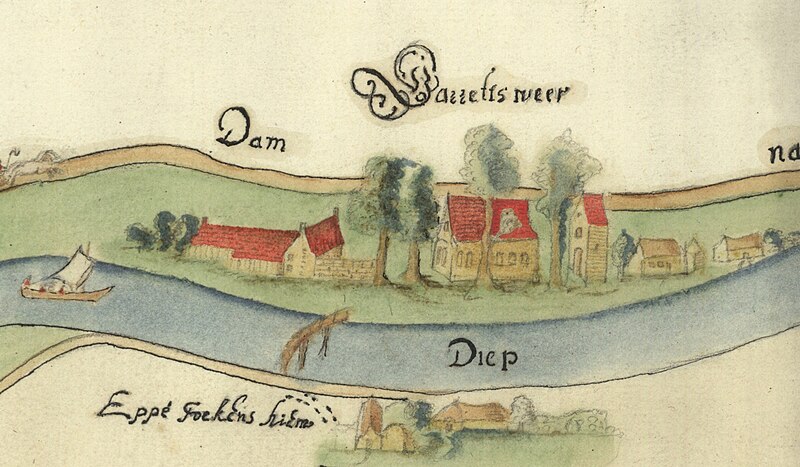 Jarretisweer
Dam
na
Diep
Eppé Fockens hiem